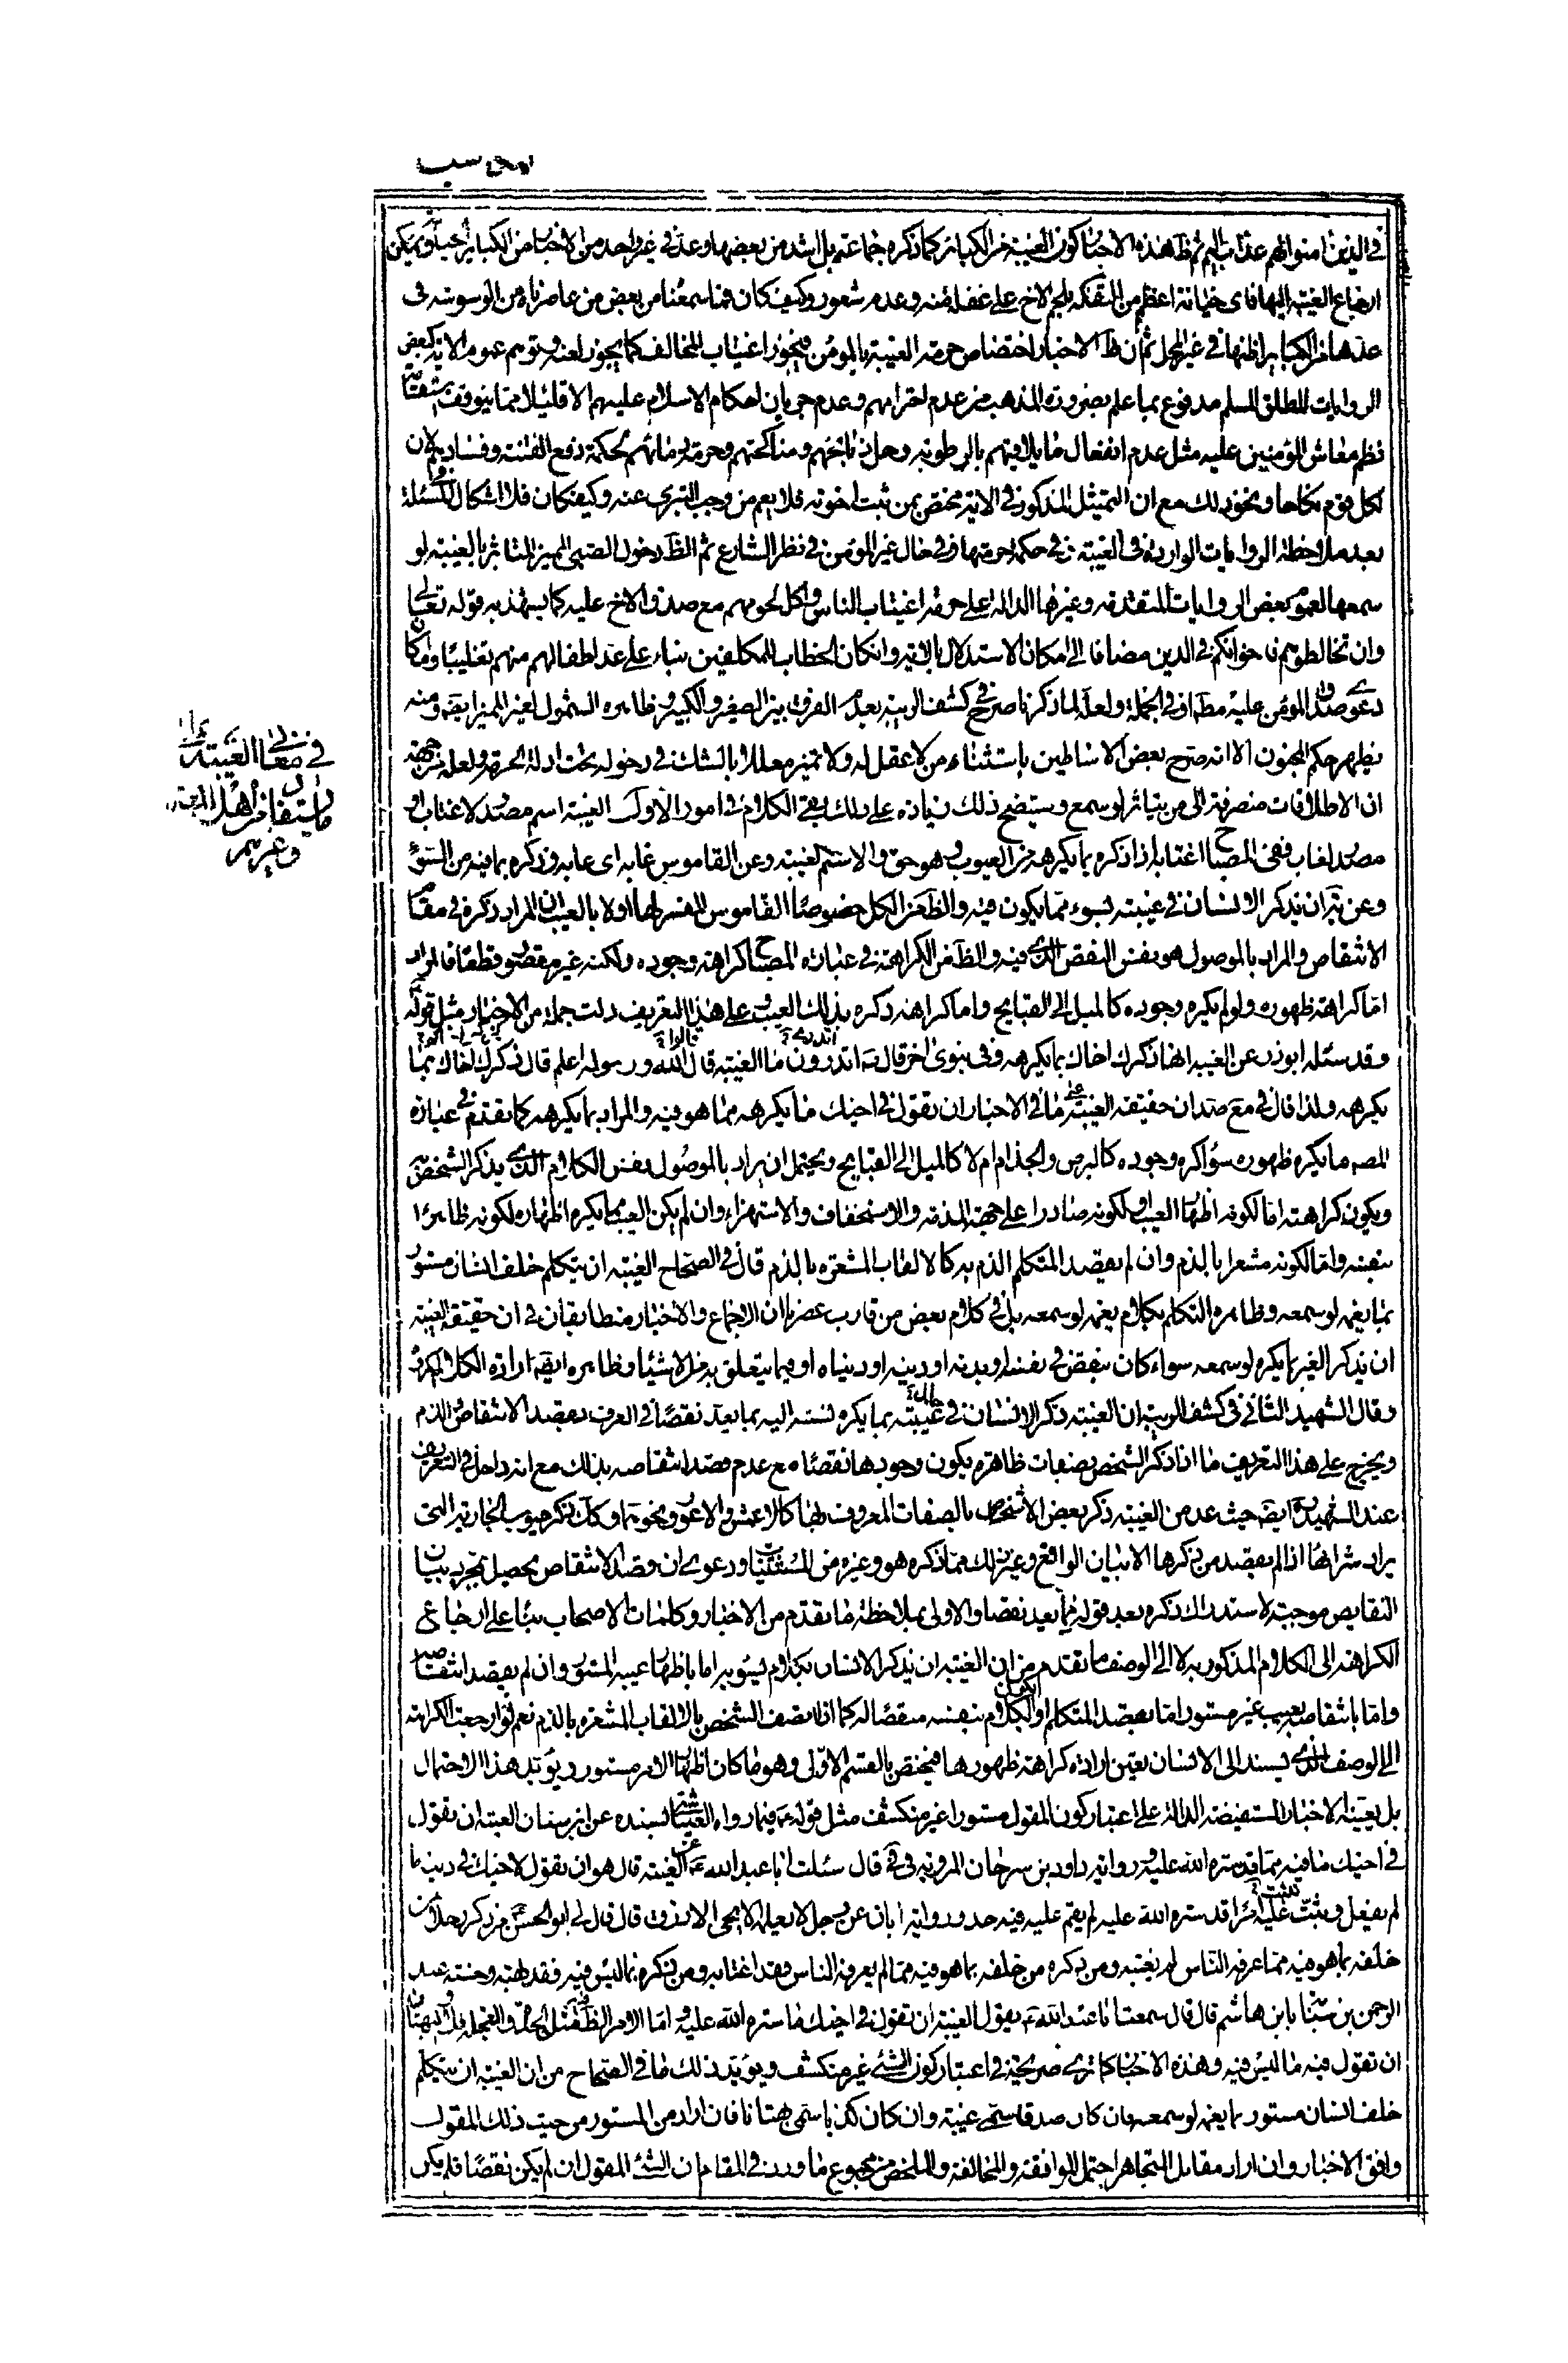 في الذين امنوا لهم عذاب اليم ثم ظ هذه الاخبار كون الغيبة من الكبائر كما ذكره جماعة بل اشد من بعضها وعد في غير واحد من الاخبار من الكبائر الخيانة ويمكن
ارجاع الغيبة اليها فاي خيانة اعظم من التفكه بلحم الاخ على غفلة منه وعدم شعور وكيف كان فما سمعناه من بعض من عاصرناه من الوسوسة في
عدها من الكبائر اظنها في غير المحل ثم ان ظ الاخبار اختصاص حرمة الغيبة بالمؤمن فيجوز اغتياب المخالف كما يجوز لعنه وتوهم عموم الاية كبعض
الروايات لمطلق المسلم مدفوع بما علم بضرورة المذهب من عدم احترامهم وعدم جريان احكام الاسلام عليهم الا قليلا مما يتوقف استقامة
نظم معاش المؤمنين عليه مثل عدم انفعال ما يلاقيهم بالرطوبة وحل ذبائحهم ومناكحتهم وحرمة دمائهم لحكمة دفع الفتنة وفساد لان
لكل قوم نكاحا ونحو ذلك مع ان التمثيل المذكور في الاية مختص بمن ثبت اخوته فلا يعم من وجب التبري عنه وكيف كان فلا اشكال في المسئلة
بعد ملاحظة الروايات الواردة في الغيبة وفي حكمة حرمتها وفي حال غير المؤمن في نظر الشارع ثم الظ دخول الصبي المميز المتاثر بالغيبة لو
سمعها لعموم بعض الروايات المتقدمة وغيرها الدالة على حرمة اغتياب الناس واكل لحومهم مع صدق الاخ عليه كما يشهد به قوله تعالى
وان تخالطوهم فاخوانكم في الدين مضافا الى امكان الاستدلال بالاية وان كان الخطاب للمكلفين بناء على عد اطفالهم منهم تغليبا وامكان
دعوى صدق المؤمن عليه مط او في الجملة ولعله لما ذكرنا صرح في كشف الريبة بعدم الفرق بين الصغير والكبير وظاهره الشمول لغير المميز ايضه ومنه
يظهر حكم المجنون الا انه صرح بعض الاساطين باستثناء من لا عقل له ولا تميز معللا بالشك في دخوله تحت ادلة الحرمة ولعله من جهة
ان الاطلاقات منصرفة الى من يتاثر لو سمع وسيتضح ذلك زيادة على ذلك بقي الكلام في امور الاول الغيبة اسم مصدر لاغتاب او
مصدر لغاب ففي المصباح اغتابه اذا ذكره بما يكرهه من العيوب وهو حق والاسم الغيبة وعن القاموس غابه اي عابه وذكره بما فيه من السوء
وعن ية ان يذكر الانسان في غيبته بسوء مما يكون فيه والظ من الكل خصوصا القاموس المفسر لها اولا بالعيب ان المراد ذكره في مقام
الانتقاص والمراد بالموصول هو نفس النقص الذي فيه والظ من الكراهة في عبارة المصباح كراهة وجوده ولكنه غير مقصود قطعا فالمراد
اما كراهة ظهوره ولو لم يكره وجوده كالميل الى القبايح واما كراهة ذكره بذلك العيب وعلى هذا التعريف دلت جملة من الاخبار مثل قوله
وقد سئله ابوذر عن الغيبة انها ذكرك اخاك بما يكرهه وفي نبوي اخر قال ص اتدرون ما الغيبة قال الله ورسوله اعلم قال ذكرك اخاك بما
يكرهه ولذا قال في مع صد ان حقيقة الغيبة على ما في الاخبار ان تقول في اخيك ما يكرهه مما هو فيه والمراد بما يكرهه كما تقدم في عبارة
المصه ما يكره ظهوره سواء كره وجوده كالبرص والجذام ام لا كالميل الى القبايح ويحتمل ان يراد بالموصول نفس الكلام الذي يذكر الشخص به
ويكون كراهته اما لكونه اظهارا للعيب او لكونه صادرا على جهة المذمة والاستخفاف والاستهزاء وان لم يكن العيب مما يكره اظهاره لكونه ظاهرا
بنفسه واما لكونه مشعرا بالذم وان لم يقصد المتكلم الذم به كالالقاب المشعرة بالذم قال في الصحاح الغيبة ان يتكلم خلف انسان مستور
بما يغمه لو سمعه وظاهره التكلم بكلام يغمه لو سمعه بل في كلام بعض من قارب عصرنا ان الاجماع والاخبار متطابقان في ان حقيقة الغيبة
ان يذكر الغير بما يكره لو سمعه سواء كان بنقص في نفسه او بدنه او دينه او دنياه او فيما يتعلق به من الاشياء وظاهره ايضه ارادة الكلام المكروه
وقال الشهيد الثاني في كشف الريبة ان الغيبة ذكر الانسان في حال غيبته بما يكره نسبته اليه بما يعد نقصا في العرف بقصد الانتقاص والذم
ويخرج على هذا التعريف ما اذا ذكر الشخص بصفات ظاهرة يكون وجودها نقصا مع عدم قصد انتقاصه بذلك مع انه داخل في التعريف
عند الشهيد ره ايضه حيث عد من الغيبة ذكر بعض الاشخاص بالصفات المعروف بها كالاعمش والاعور ونحوهما وكك ذكر عيوب الجارية التي
يراد شرائها اذا لم يقصد من ذكرها الا بيان الواقع وغير ذلك مما ذكره هو وغيره من المستثنيات ودعوى ان قصد الانتقاص يحصل بمجرد بيان
النقايص موجبة لاستدراك ذكره بعد قوله بما يعد نقصا والاولى بملاحظة ما تقدم من الاخبار وكلمات الاصحاب بناء على ارجاع
الكراهة الى الكلام المذكور به لا الى الوصف ما تقدم من ان الغيبة ان يذكر الانسان بكلام يسوئه اما باظهار عيبه المستور وان لم يقصد انتقاصه
واما بانتقاصه بعيب غير مستور اما بقصد المتكلم او لكون الكلام بنفسه منقصا له كما اذا اتصف الشخص بالالقاب المشعرة بالذم نعم لو ارجعت الكراهة
الى الوصف الذي يسند الى الانسان تعين ارادة كراهة ظهورها فيختص بالقسم الاول وهو ما كان اظهارا لامر مستور ويؤيد هذا الاحتمال
بل يعينه الاخبار المستفيضة الدالة على اعتبار كون المقول مستورا غير منكشف مثل قوله ع فيما رواه العياشي بسنده عن ابن سنان الغيبة ان تقول
في اخيك ما فيه مما قد ستره الله عليه ورواية داود بن سرحان المروية في في قال سئلت ابا عبد الله ع عن الغيبة قال هو ان تقول لاخيك في دينه ما
لم يفعل وتبث عليه امرا قد ستره الله عليه لم يقم عليه فيه حد ورواية ابان عن رجل لا يعلمه الا يحيى الازرق قال قال لي ابو الحسن ع من ذكر رجلا من
خلفه بما هو فيه مما عرفه الناس لم يغتبه ومن ذكره من خلفه بما هو فيه مما لم يعرفه الناس فقد اغتابه ومن ذكره بما ليس فيه فقد بهته وحسنة عبد
الرحمن بن سيابة بابن هاشم قال قال سمعت ابا عبد الله ع يقول الغيبة ان تقول في اخيك ما ستره الله عليه واما الامر الظاهر فيه مثل الحدة والعجلة فلا والبهتان
ان تقول فيه ما ليس فيه وهذه الاخبار كما ترى صريحة في اعتبار كون الشئ غير منكشف ويؤيد ذلك ما في الصحاح من ان الغيبة ان يتكلم
خلف انسان مستور بما يغمه لو سمعه فان كان صدقا سمي غيبة وان كان كذبا سمي بهتانا فان اراد من المستور من حيث ذلك المقول
وافق الاخبار وان اراد مقابل المتجاهر احتمل الموافقة والمخالفة والملخص من مجموع ما ورد في المقام ان الشئ المقول ان لم يكن نقصا فلا يكن
في معنى الغيبة
ما يستفاد من اهل اللغة
وغيرهم